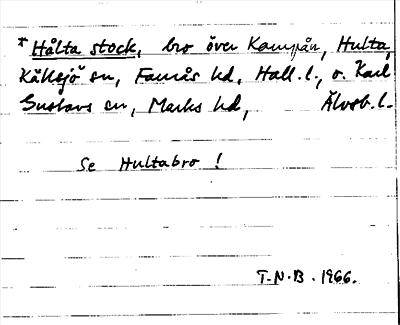 * Hålta stock, bro över Kampån, Hulta,
Källsjö sn, Faurås hd, Hall. l., o. Karl
Gustavs sn, Marks hd, Älvsb. l.
Se Hultabro !
T.N.B. 1966.